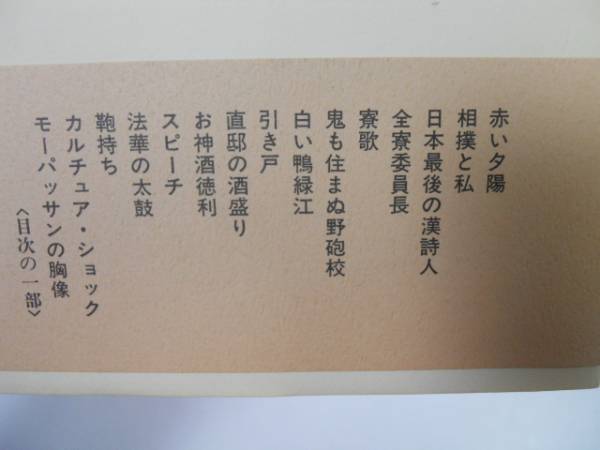 赤い夕陽
相撲と私
日本最後の漢詩人
全寮委員長
寮歌
鬼も住まぬ野砲校
白い鴨緑江
引き戸
直邸の酒盛り
お神酒徳利
スピーチ
法華の太鼓
鞄持ち
カルチュア・ショック
モーパッサンの胸像
〈目次の一部〉